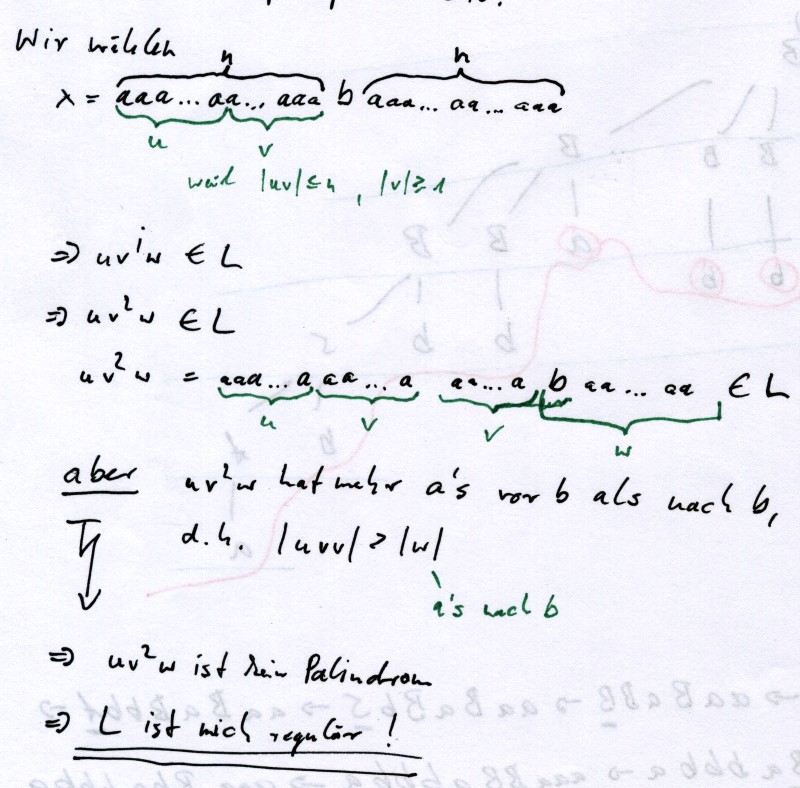 Wir wählen
n n
x = aaa...aa...aaa b aaa...aa...aaa
u v
weil |uv| ≤ n, |v| ≥ 1
⇒ uvⁱw ∈ L
⇒ uv²w ∈ L
uv²w = aaa...a aa...a aa...a b aa...aa ∈ L
u v v w
aber uv²w hat mehr a's vor b als nach b,
d.h. |uvv| > |w|
a's nach b
⇒ uv²w ist kein Palindrom
⇒ L ist nich regulär!